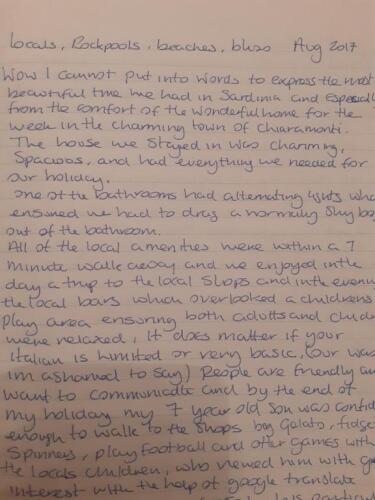 locals, Rockpools, beaches, bliss Aug 2017
Wow I cannot put into words to express the most
beautiful time we had in Sardinia and Especially
from the comfort of the wonderful home for the
week in the charming town of chiaramonti.
The house we stayed in was charming,
Spacious, and had everything we needed for
our holiday.
one of the bathrooms had alternating lights
ensured we had to drag a normally shy boy
out of the bathroom.
All of the local amenities were within a 7
minute walk away and we enjoyed in the
day a trip to the local shops and in the
the local bars which overlooked a childrens
play area ensuring both adults and
were relaxed, It does matter if your
Italian is limited or very basic, (our was
im ashamed to say) People are friendly
want to communicate and by the end of
my holiday my 7 year old Son was
enough to walk to the shops buy Gelato,
Spinners, play football and other games with
the locals children, who viewed him with
interest with the help of google translate